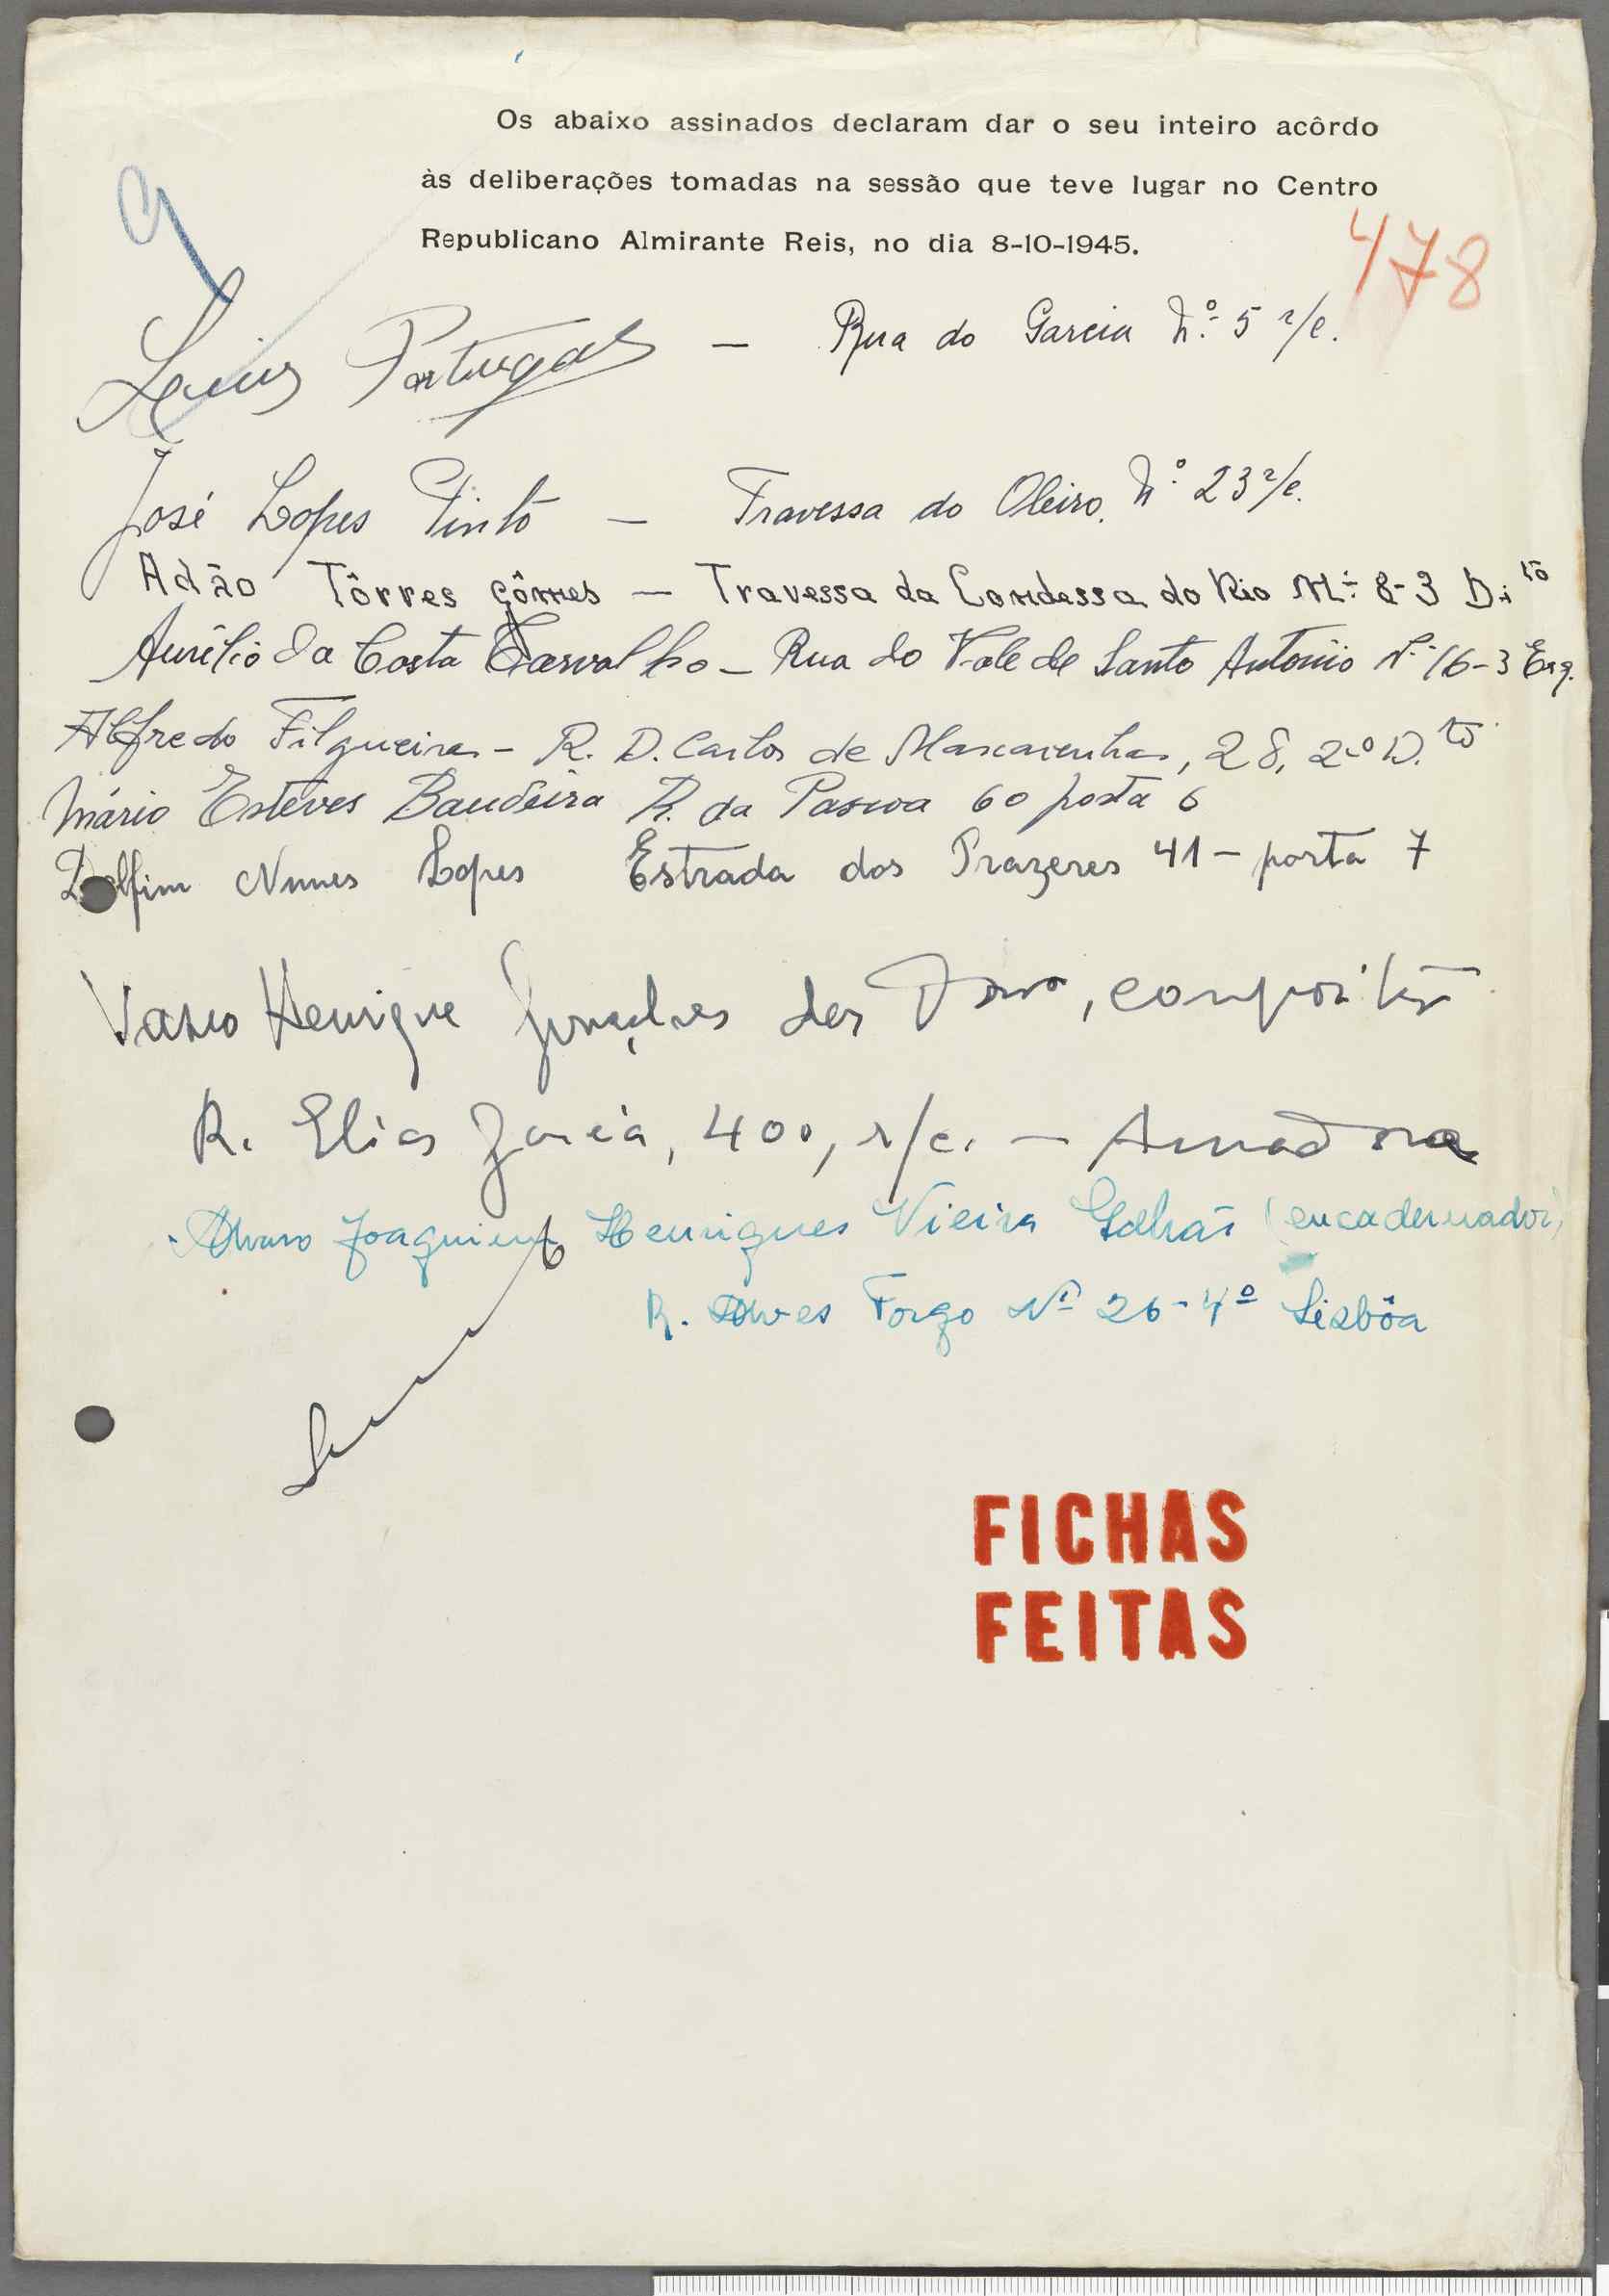 Os abaixo assinados declaram dar o seu inteiro acôrdo
às deliberações tomadas na sessão que teve lugar no Centro
Republicano Almirante Reis, no dia 8-10-1945.
9
478
Luis Portugal — Rua do Garcia N.º 5 r/c.
José Lopes Pinto — Travessa do Oleiro. Nº 23 r/c.
Adão Tôrres Gômes — Travessa da Condessa do Rio Nº 8-3 D.to
Aurélio da Costa Carvalho — Rua do Vale de Santo Antonio Nº 16-3 Esq.
Alfredo Filgueiras — R. D. Carlos de Mascarenhas, 28, 2.º D.to
Mário Esteves Bandeira R. da Pascoa 60 porta 6
Delfim Nunes Lopes Estrada dos Prazeres 41 — porta 7
Vasco Henrique Gonçalves das, compositor
R. Elias Garcia, 400, r/c. — Amadora
Alvaro Joaquim Henriques Vieira (encadernador)
R. Alves Torgo Nº 26-4º Lisbôa
FICHAS
FEITAS